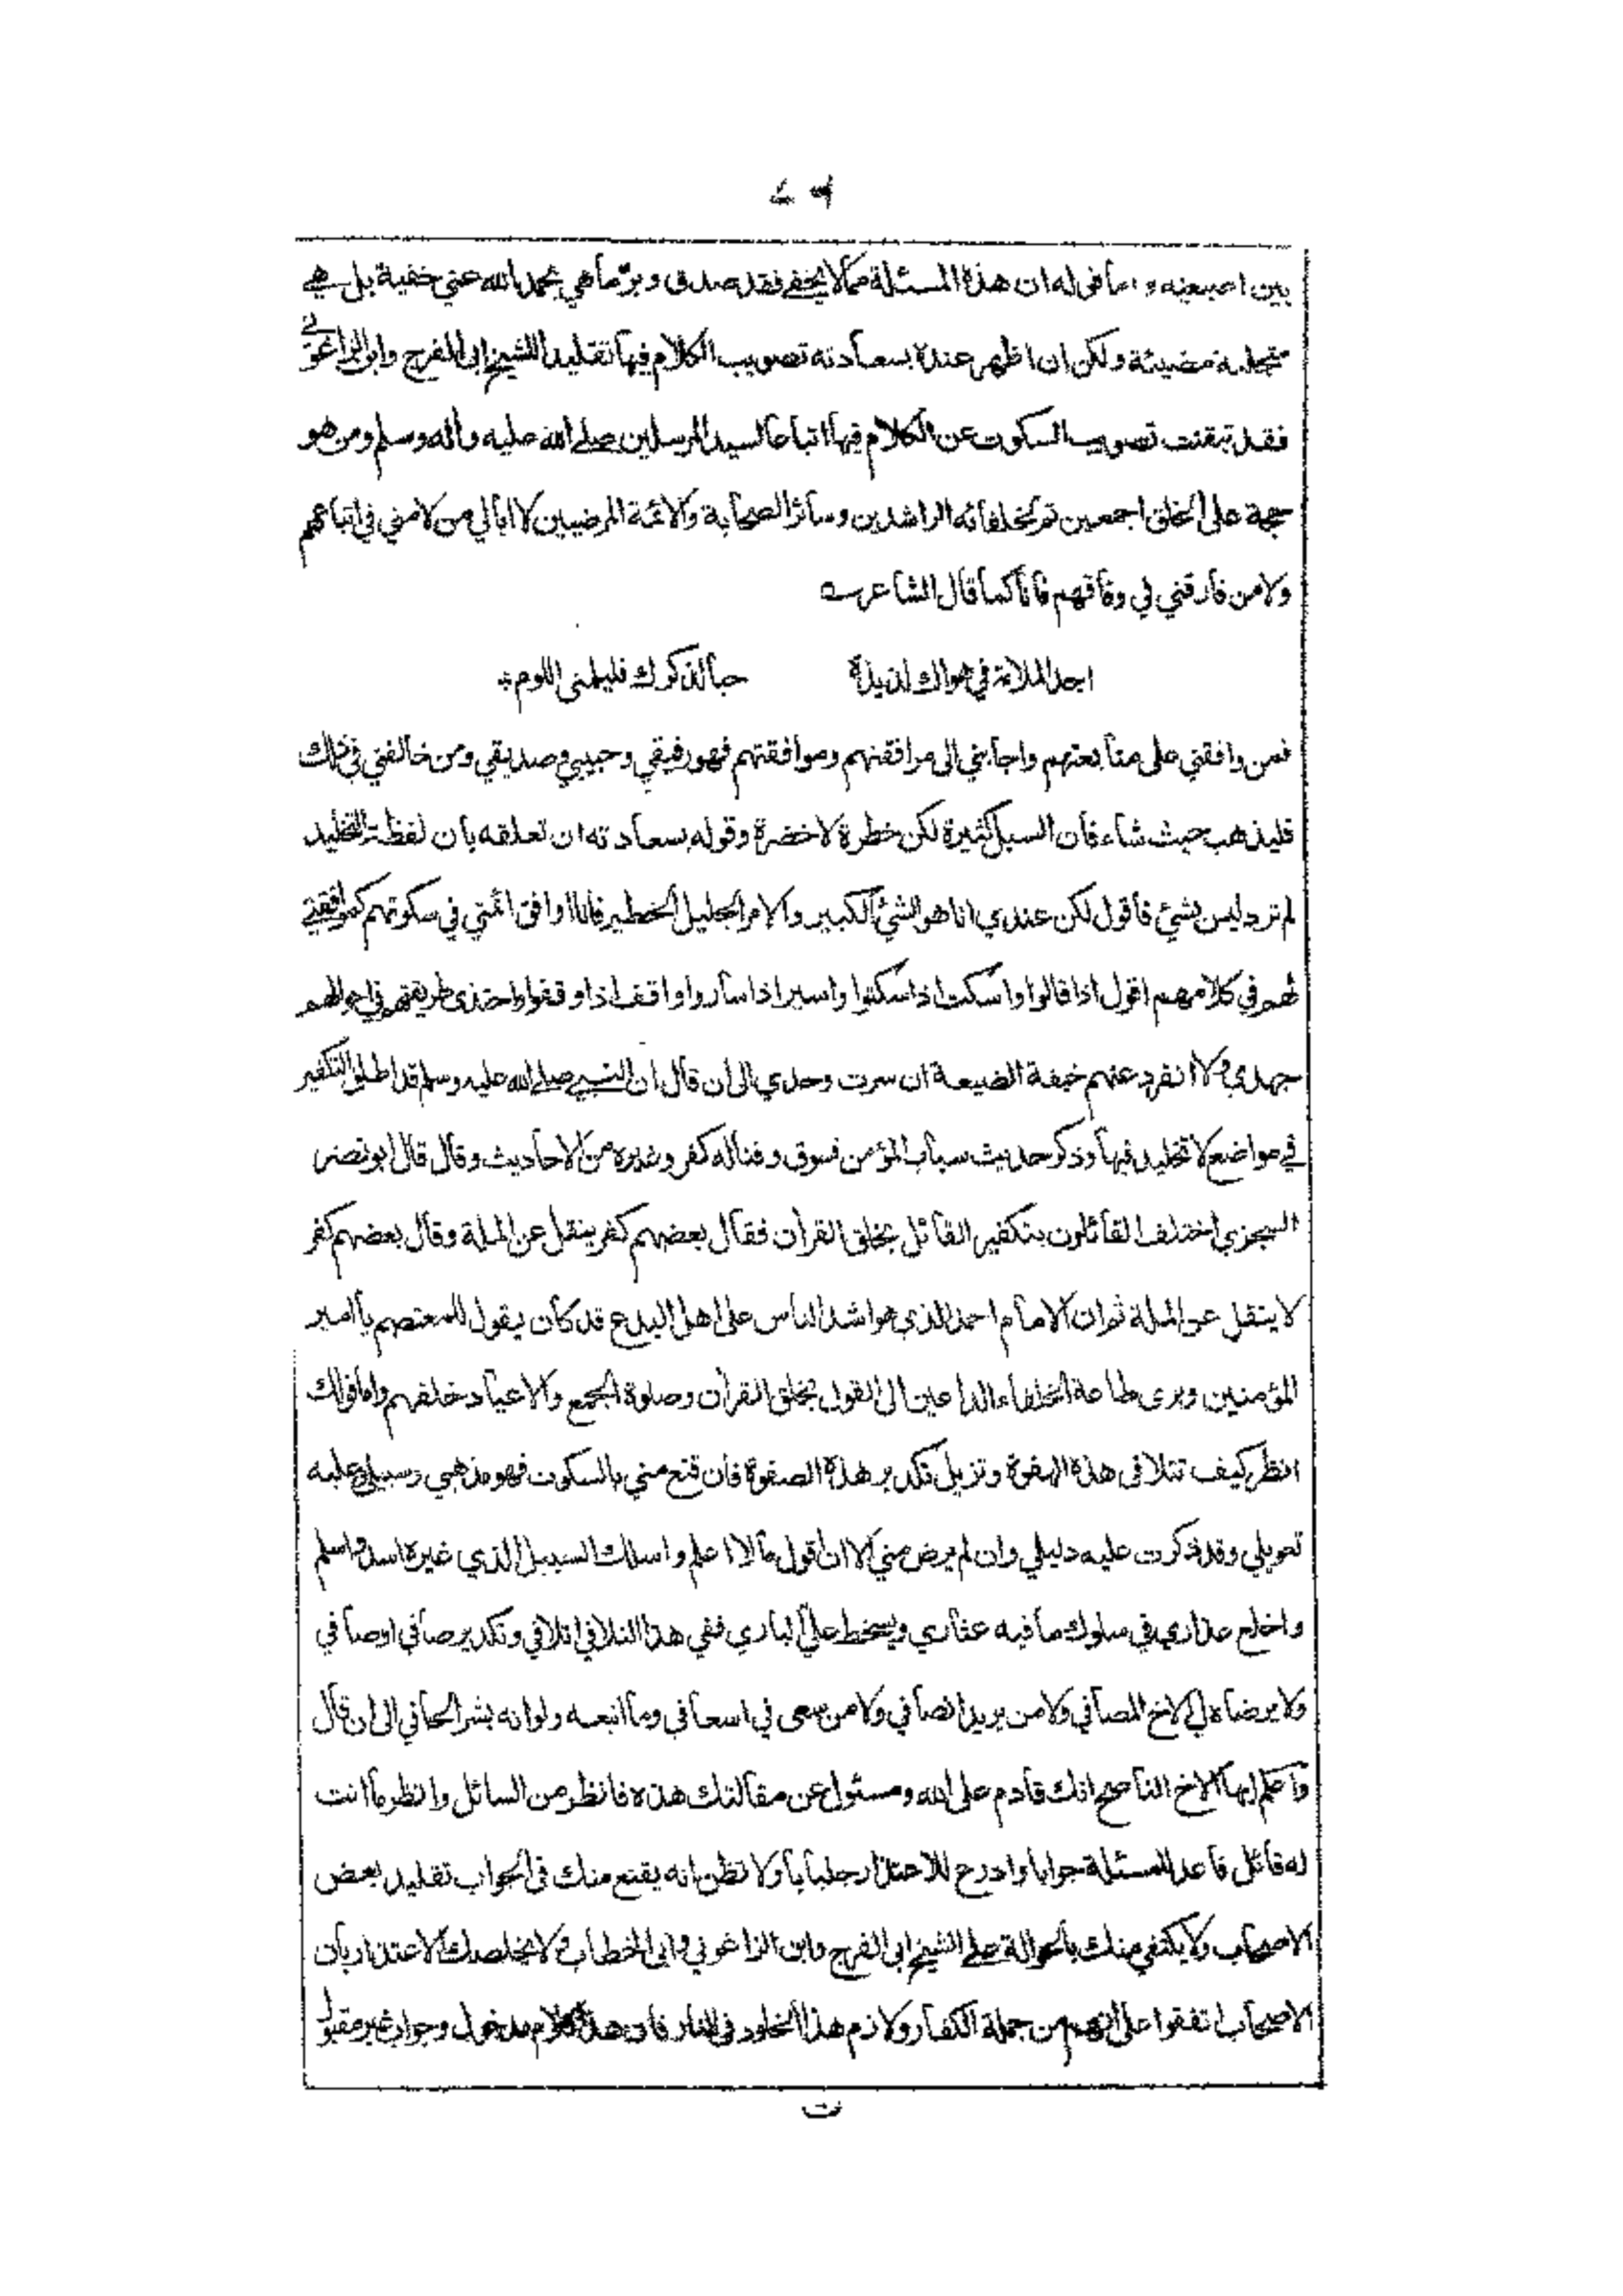 بين اصبعيه و اما قوله ان هذه المسئلة مما لا يخفى فقد صدق وبرّ ما هي بحمد الله عني خفية بل هي
متجلية مضيئة ولكن ان ظهر عنده بسعادته تصويب الكلام فيها تقليدا للشيخ ابي الفرج وابن الزاغوني
فقد تيقنت تصويب السكوت عن الكلام فيها اتباعا لسيد المرسلين صلى الله عليه وآله وسلم ومن هو
حجة على الخلق اجمعين ثم لخلفائه الراشدين وسائر الصحابة والائمة المرضيين لا ابالي من لامني في اتباعهم
ولا من فارقني في وفاقهم فانا كما قال الشاعر
اجد الملامة في هواك لذيذة حبا لذكرك فليلمني اللوم
فمن وافقني على متابعتهم واجابني الى مرافقتهم وموافقتهم فهو رفيقي وحبيبي وصديقي ومن خالفني في ذلك
فليذهب حيث شاء فان السبل كثيرة لكن خطرة لا خضرة وقوله بسعادته ان تعلقه بان لفظة التخليد
لم ترد ليس بشئ فاقول لكن عندي انا هو الشئ الكبير والامر الجليل الخطير فانا اوافق ائمتي في سكوتهم كموافقتي
لهم في كلامهم اقول اذا قالوا واسكت اذا سكتوا واسير اذا ساروا واقف اذا وقفوا واحتذي طريقتهم في احوالهم
جهدي ولا انفرد عنهم خيفة الضيعة ان سرت وحدي الى ان قال ان النبي صلى الله عليه وسلم قد اطلق التكفير
في مواضع لا تخليد فيها وذكر حديث سباب المؤمن فسوق وقتاله كفر وغيره من الاحاديث وقال قال ابو نصر
السجزي اختلف القائلون بتكفير القائل بخلق القرآن فقال بعضهم كفر ينقل عن الملة وقال بعضهم كفر
لا ينقل عن الملة ثم ان الامام احمد الذي هو اشد الناس على اهل البدع قد كان يقول للمعتصم يا امير
المؤمنين ويرى طاعة الخلفاء الداعين الى القول بخلق القرآن وصلوة الجمع والاعياد خلفهم واما قولك
انظر كيف تتلافى هذه الهفوة وتزيل تكدير هذه الصفوة فان قنع مني بالسكوت فهو مذهبي وسبيلي وعليه
تعويلي وقد ذكرت عليه دليلي وان لم يرض مني الا ان اقول ما لا اعلم واسلك السبيل الذي غيره اسد واسلم
واخلع عذاري في سلوك ما فيه عثاري ويسخط علي الباري ففي هذا التلافي اتلافي وتكدير صافي اوصافي
ولا يرضاه لي الاخ المصافي ولا من يريد انصافي ولا من سعى في اسعافي وما اتبعه ولو انه بشر الحافي الى ان قال
واعلم ايها الاخ الناصح انك قادم على الله ومسئول عن مقالتك هذه فانظر من السائل وانظر ما انت
له قائل فاعد للمسئلة جوابا وادرع للاعتذار جلبابا ولا تظن انه يقنع منك في الجواب تقليد بعض
الاصحاب ولا يكتفي منك بالحوالة على الشيخ ابي الفرج وابن الزاغوني وابي الخطاب ولا يخلصك الاعتذار بان
الاصحاب اتفقوا على انهم من جملة الكفار ولازم هذا الخلود في النار فان هذا الكلام مدخول وجواب غير مقبول